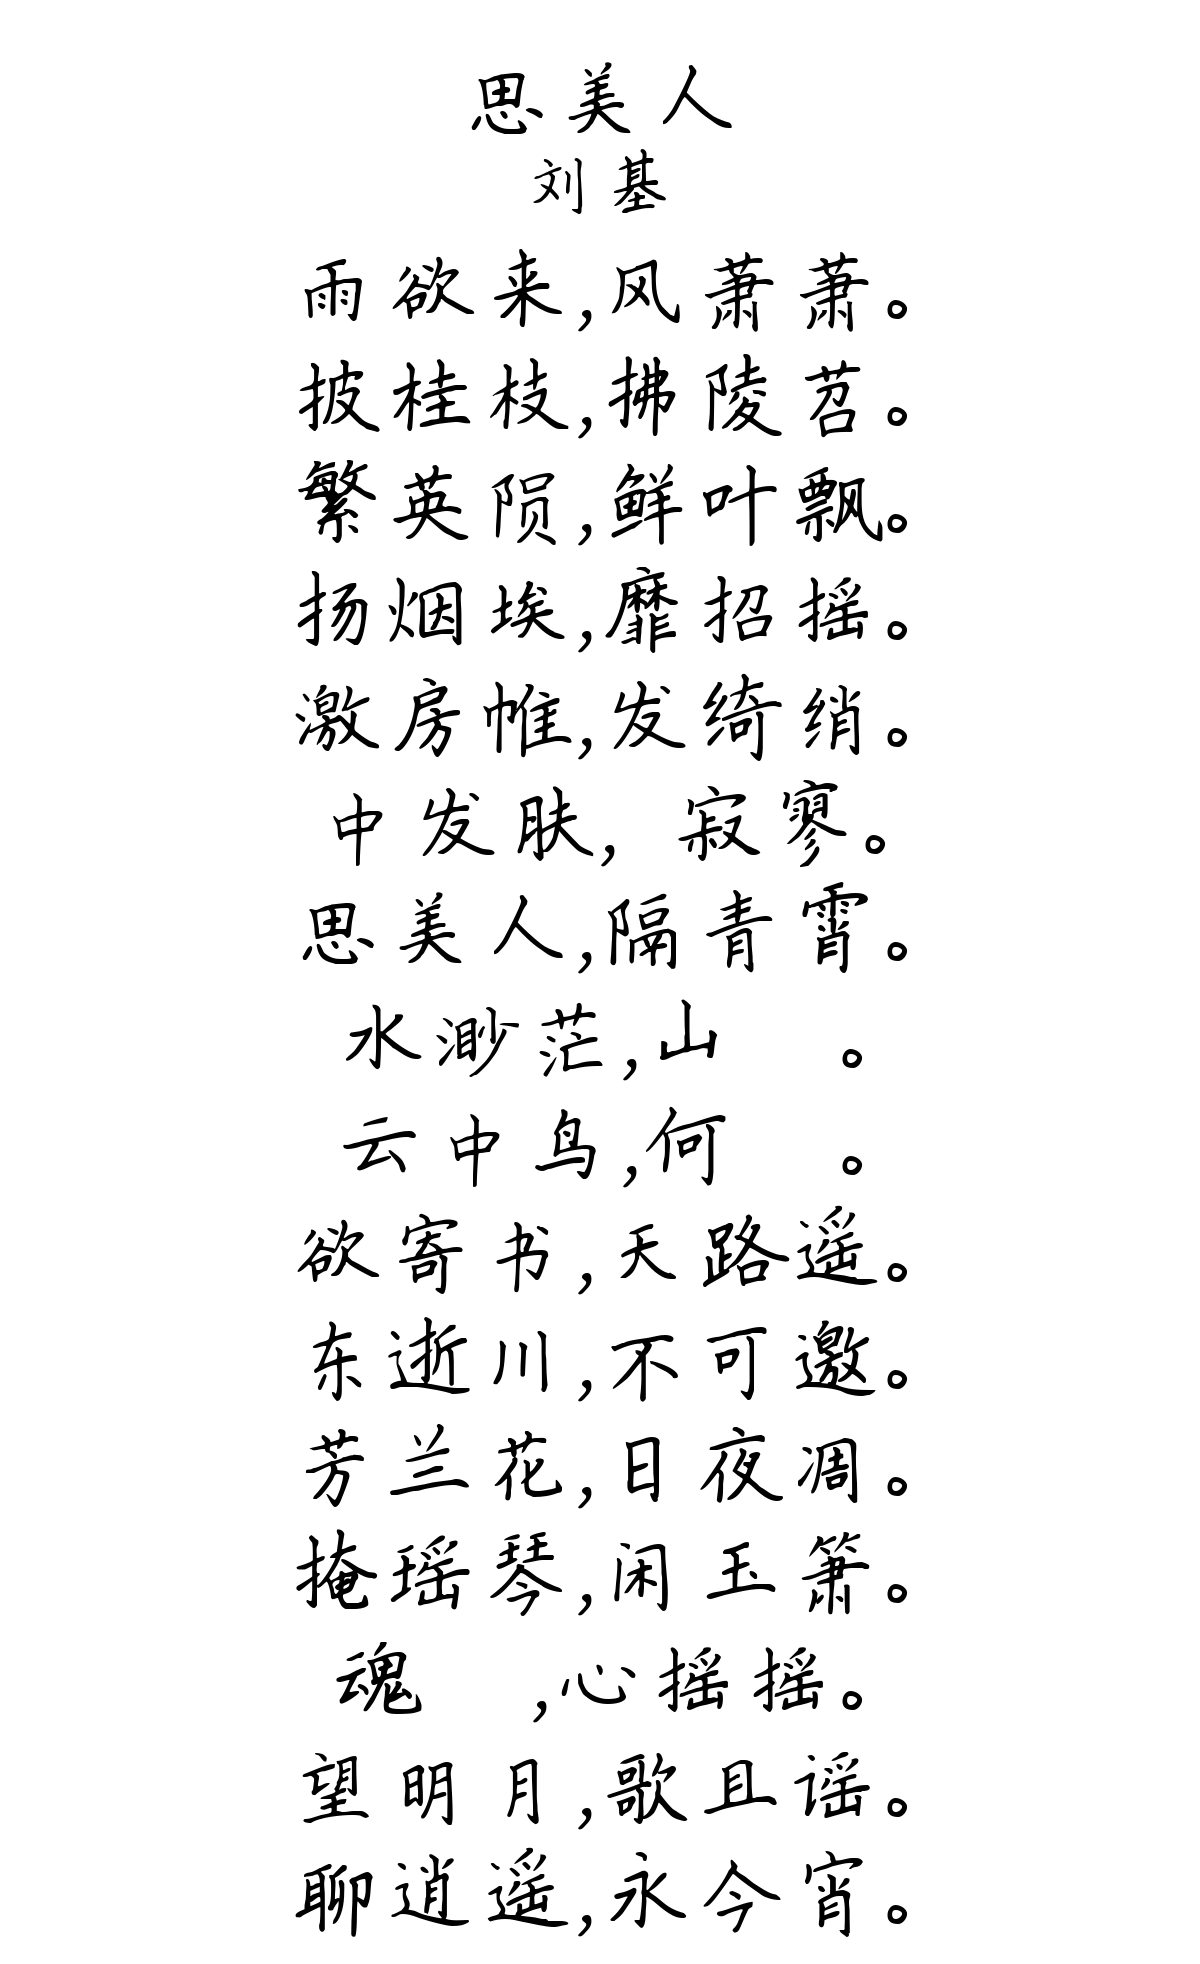 思美人
刘基
雨欲来,风萧萧。
披桂枝,拂陵苕。
繁英陨,鲜叶飘。
扬烟埃,靡招摇。
激房帷,发绮绡。
中发肤, 寂寥。
思美人,隔青霄。
水渺茫,山 。
云中鸟,何 。
欲寄书,天路遥。
东逝川,不可邀。
芳兰花,日夜凋。
掩瑶琴,闲玉箫。
魂 ,心摇摇。
望明月,歌且谣。
聊逍遥,永今宵。